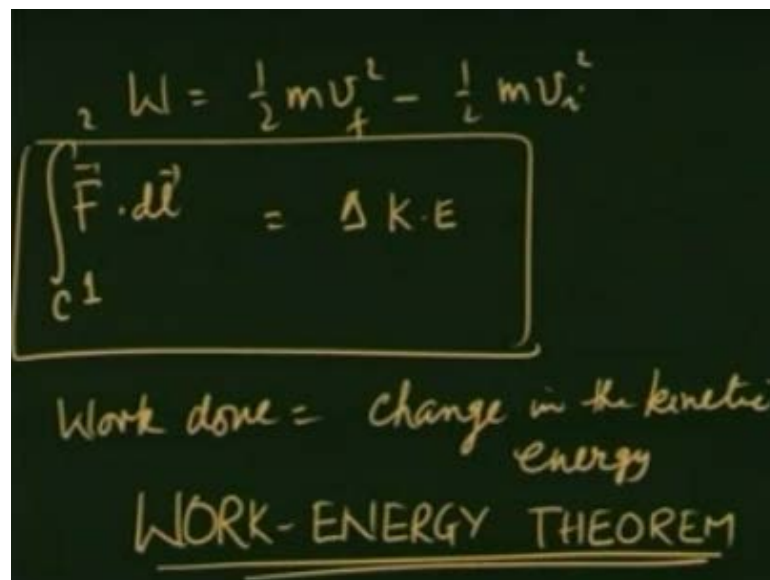 W = ½ mv_f² - ½ mv_i²
∫_{C 1}^{2} F⃗ . dl⃗ = Δ K.E
Work done = change in the kinetic
energy
WORK-ENERGY THEOREM